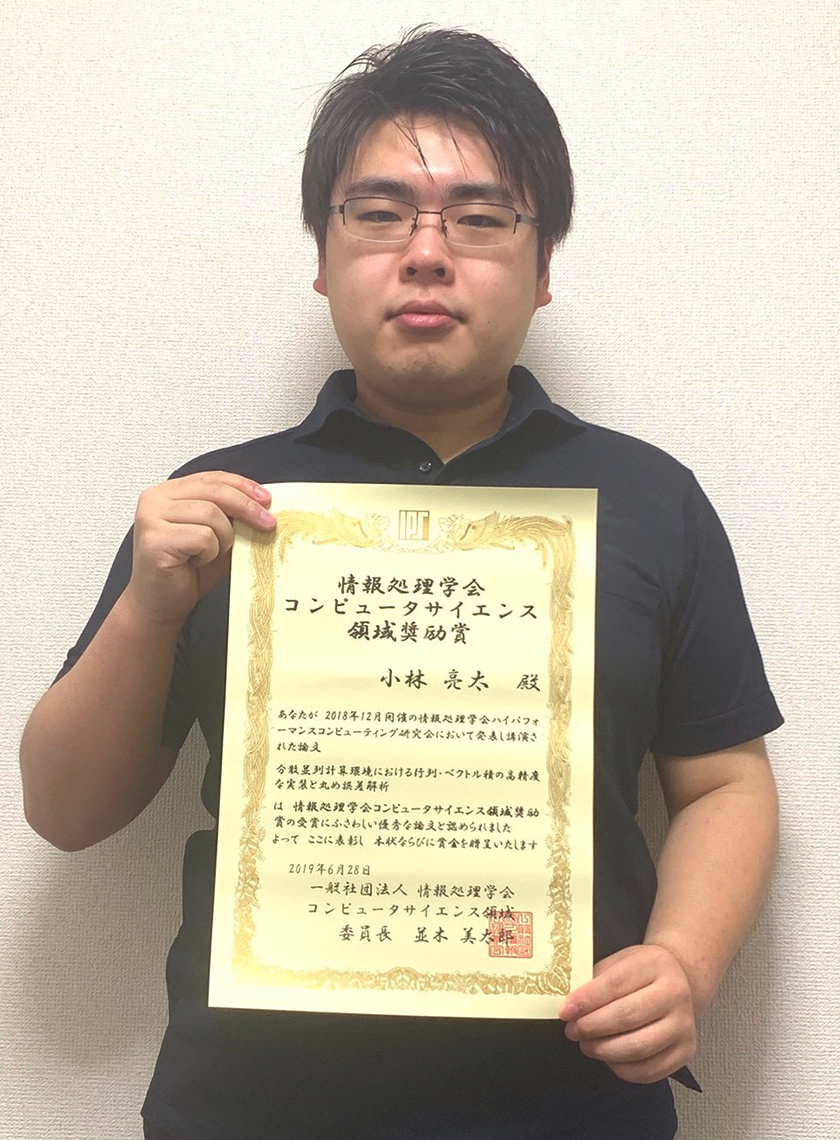 IPS
情報処理学会
コンピュータサイエンス
領域奨励賞
小林 亮太 殿
あなたが 2018年12月開催の情報処理学会ハイパフォ
ーマンスコンピューティング研究会において発表し講演さ
れた論文
分散並列計算環境における行列・ベクトル積の高精度
な実装と丸め誤差解析
は 情報処理学会コンピュータサイエンス領域奨励
賞の受賞にふさわしい優秀な論文と認められました
よって ここに表彰し 本状ならびに賞金を贈呈いたします
2019年6月28日
一般社団法人 情報処理学会
コンピュータサイエンス領域
委員長 並木 美太郎